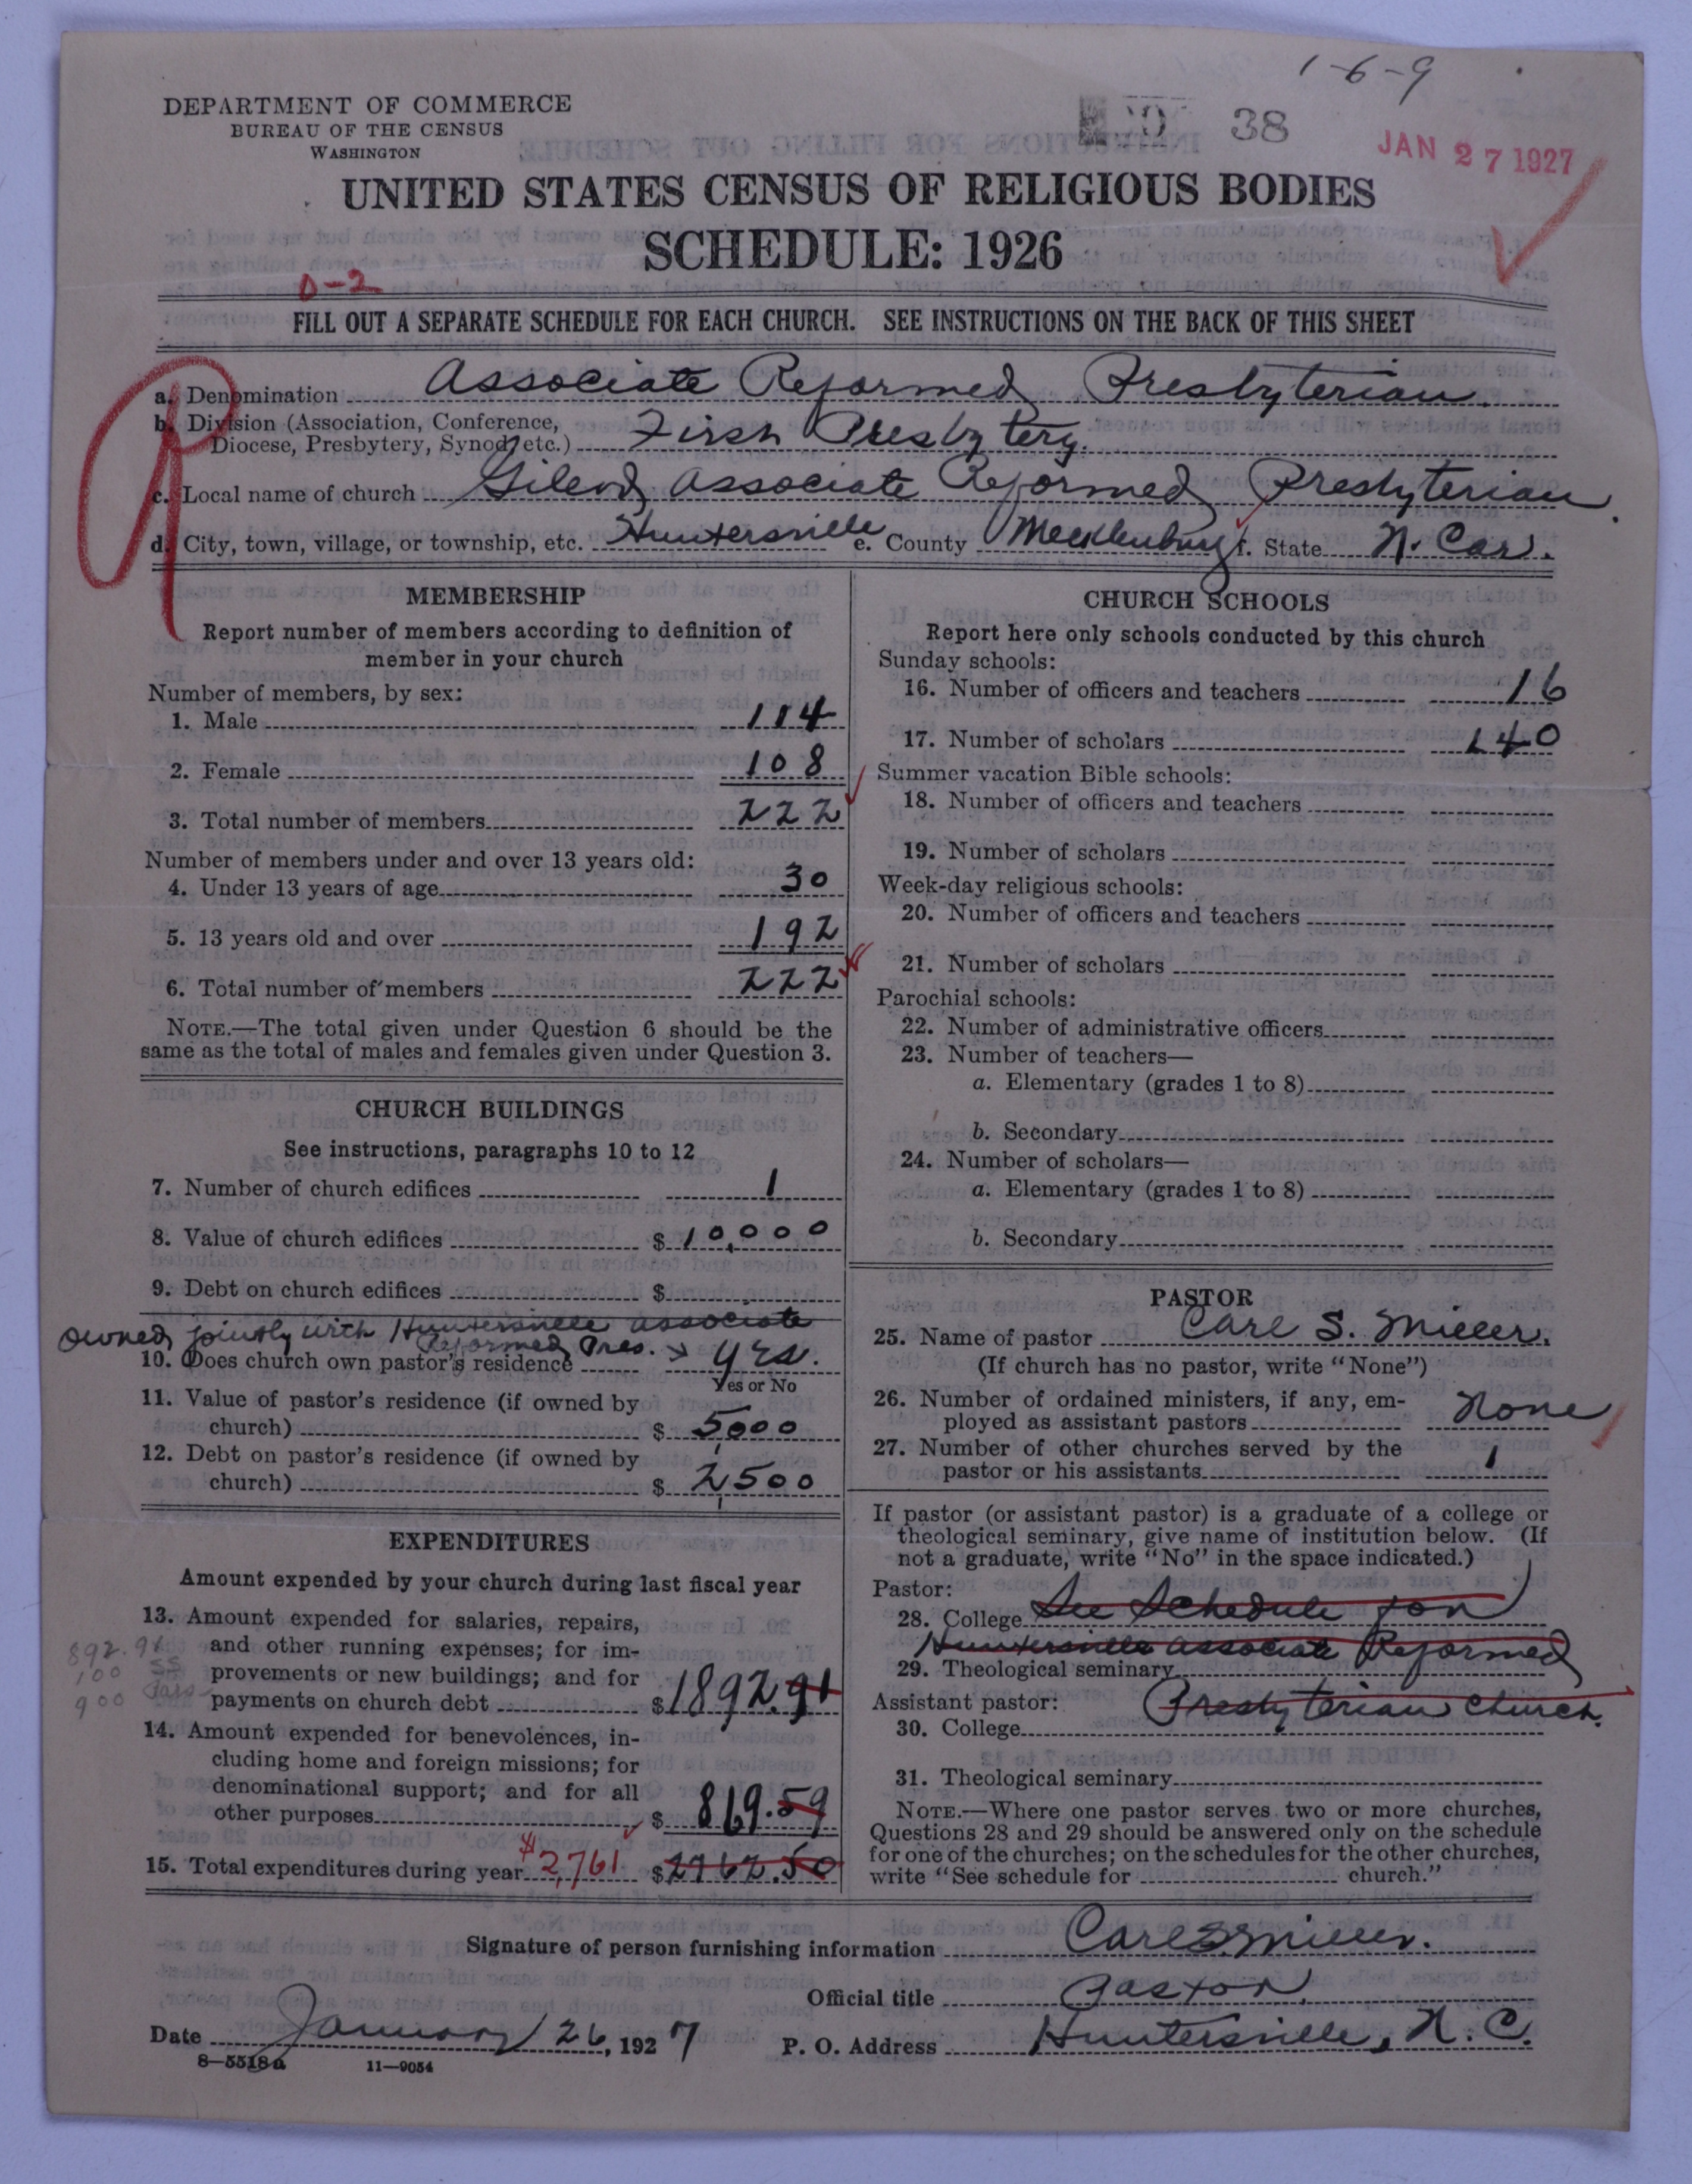 1-6-9
DEPARTMENT OF COMMERCE
BUREAU OF THE CENSUS
WASHINGTON
38
JAN 27 1927
UNITED STATES CENSUS OF RELIGIOUS BODIES
SCHEDULE: 1926
0-2
FILL OUT A SEPARATE SCHEDULE FOR EACH CHURCH. SEE INSTRUCTIONS ON THE BACK OF THIS SHEET
a. Denomination Associate Reformed Presbyterian.
b. Division (Association, Conference,
Diocese, Presbytery, Synod, etc.) First Presbytery.
c. Local name of church Gilead Associate Reformed Presbyterian.
d. City, town, village, or township, etc. Huntersville e. County Mecklenburg f. State N. Car.
MEMBERSHIP
Report number of members according to definition of
member in your church
Number of members, by sex:
1. Male 114
2. Female 108
3. Total number of members 222
Number of members under and over 13 years old:
4. Under 13 years of age 30
5. 13 years old and over 192
6. Total number of members 222
NOTE.—The total given under Question 6 should be the
same as the total of males and females given under Question 3.
CHURCH BUILDINGS
See instructions, paragraphs 10 to 12
7. Number of church edifices 1
8. Value of church edifices $ 10,000
9. Debt on church edifices $
Owned jointly with Huntersville Associate
Reformed Pres.
10. Does church own pastor's residence yes.
Yes or No
11. Value of pastor's residence (if owned by
church) $ 5,000
12. Debt on pastor's residence (if owned by
church) $ 2,500
EXPENDITURES
Amount expended by your church during last fiscal year
13. Amount expended for salaries, repairs,
and other running expenses; for im-
provements or new buildings; and for
payments on church debt $ 1892.91
892.91
100 SS
900 Pars
14. Amount expended for benevolences, in-
cluding home and foreign missions; for
denominational support; and for all
other purposes $ 869.59
15. Total expenditures during year $2,761 $2762.50
CHURCH SCHOOLS
Report here only schools conducted by this church
Sunday schools:
16. Number of officers and teachers 16
17. Number of scholars 140
Summer vacation Bible schools:
18. Number of officers and teachers
19. Number of scholars
Week-day religious schools:
20. Number of officers and teachers
21. Number of scholars
Parochial schools:
22. Number of administrative officers
23. Number of teachers—
a. Elementary (grades 1 to 8)
b. Secondary
24. Number of scholars—
a. Elementary (grades 1 to 8)
b. Secondary
PASTOR
25. Name of pastor Carl S. Miller.
(If church has no pastor, write "None")
26. Number of ordained ministers, if any, em-
ployed as assistant pastors None
27. Number of other churches served by the
pastor or his assistants 1
If pastor (or assistant pastor) is a graduate of a college or
theological seminary, give name of institution below. (If
not a graduate, write "No" in the space indicated.)
Pastor:
28. College See Schedule for
Huntersville Associate Reformed
29. Theological seminary
Assistant pastor: Presbyterian Church.
30. College
31. Theological seminary
NOTE.—Where one pastor serves two or more churches,
Questions 28 and 29 should be answered only on the schedule
for one of the churches; on the schedules for the other churches,
write "See schedule for church."
Signature of person furnishing information Carl S Miller.
Official title Pastor.
Date January 26, 1927 P. O. Address Huntersville, N. C.
8—5518a 11—9054